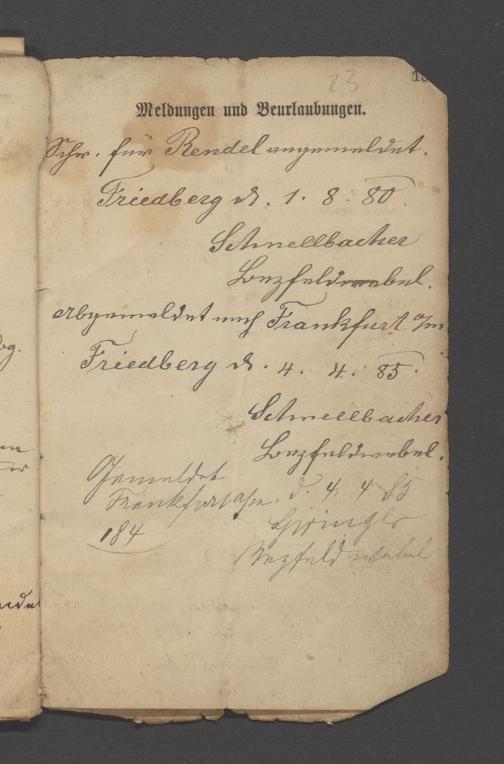 23
Meldungen und Beurlaubungen.
Schr. für Rendel angemeldet.
Friedberg d. 1. 8. 80.
Schnellbacher
Bezfeldwebel.
Abgemeldet nach Frankfurt a/m
Friedberg d. 4. 4. 85.
Schnellbacher
Bezfeldwebel.
Gemeldet
Frankfurt a/m. d. 4. 4. 85
184
Bezfeldwebel